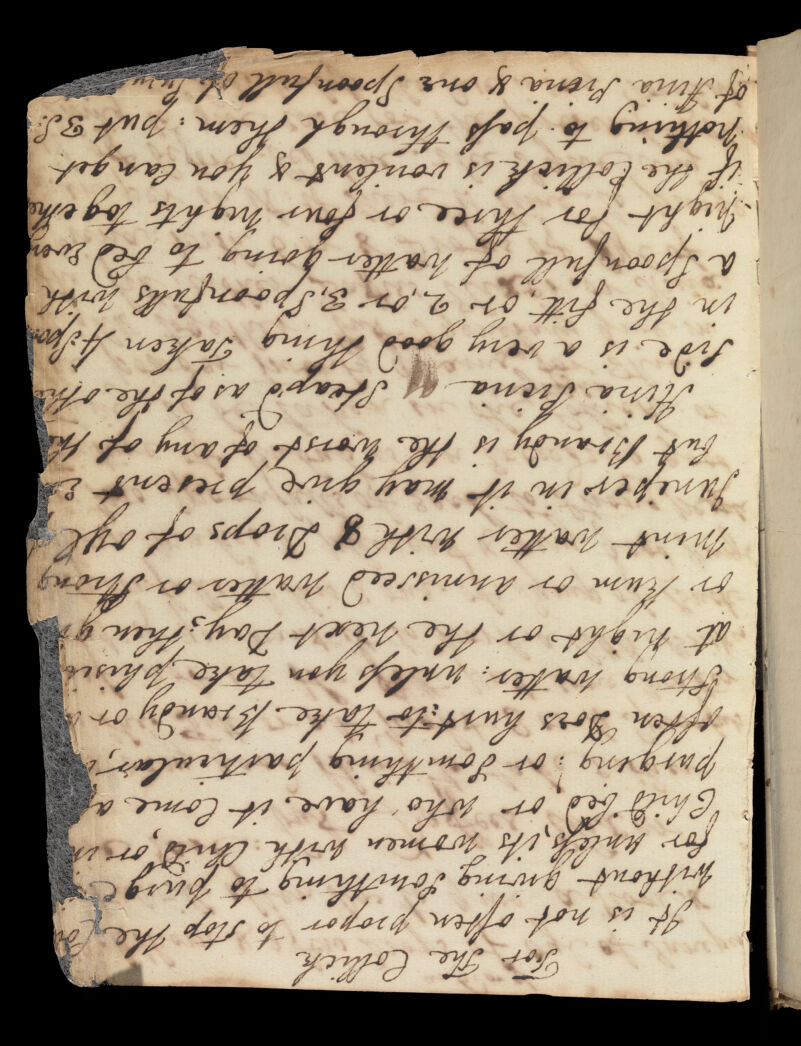 For The Collick
It is not often propor to stop the
without giving Somthing to purge
for unless, its women with Child, or in
Child bed, or who have it Come a
purging; or Somthing particular,
often Dos hurt: to take Brandy or
Strong watter: unless you take phisic
at night or the next Day; then
or Rum or annisced watter or Strong
mint watter with 8 Drops of oyl
Juneper in it may give present
but Brandy is the worst of any of the
Hira Picra Steap'd as of the othe
Side is a very good thing Taken 4 Spoo
in the fitt, or 2, or 3, Spoonfulls with
a Spoonfull of watter going to bed every
night for three or four nights together
if the Collick is vonient & you Can get
nothing to pass through them: put 3 S
of Hira Picra & one Spoonfull of